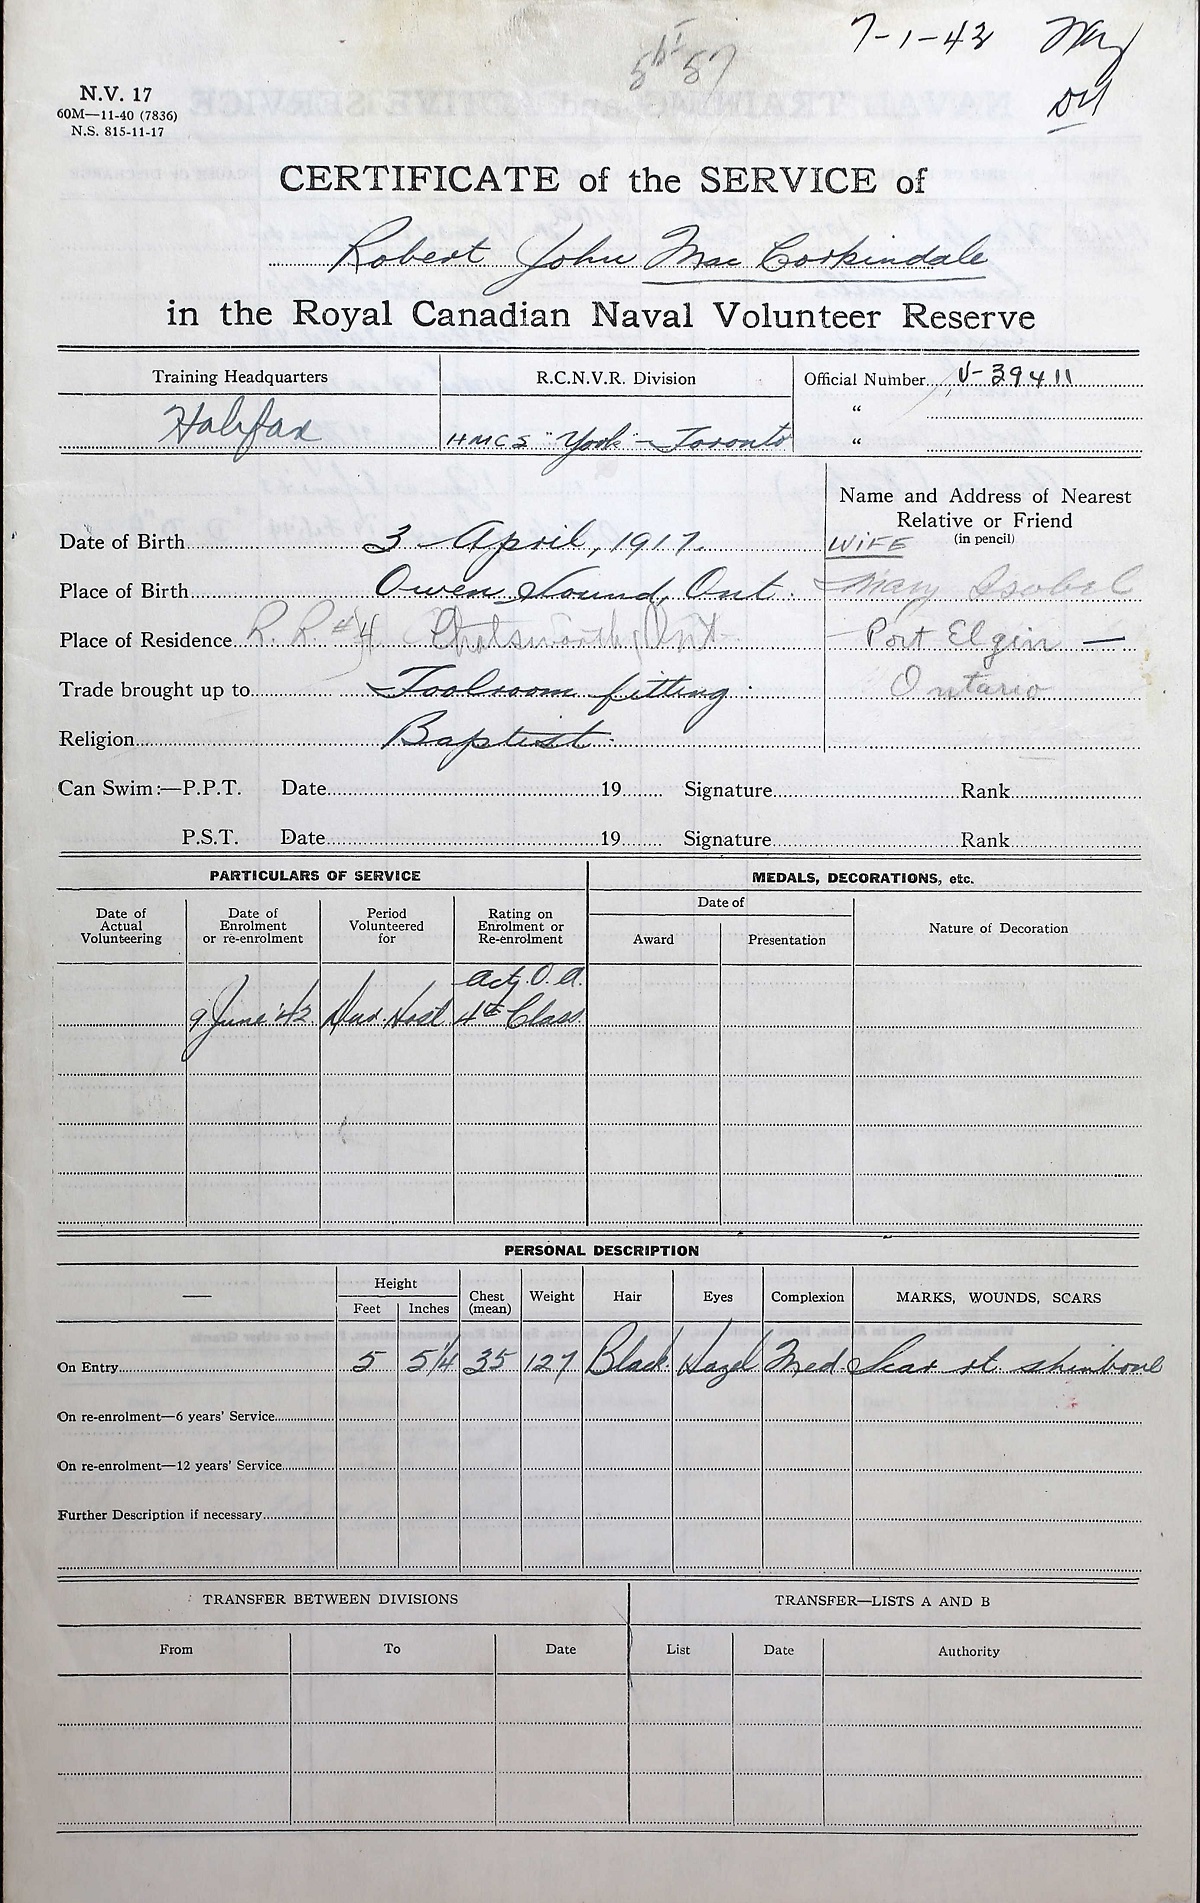 7-1-43
N.V. 17
60M—11-40 (7836)
N.S. 815-11-17
CERTIFICATE of the SERVICE of
Robert John Mac Corkindale
in the Royal Canadian Naval Volunteer Reserve
Training Headquarters R.C.N.V.R. Division Official Number V-39411
Halifax HMCS "York" - Toronto "
"
Name and Address of Nearest
Relative or Friend
(in pencil)
Date of Birth 3 April, 1917. WIFE
Place of Birth Owen Sound, Ont. Mary Isobel
Place of Residence R. R. #4 Chatsworth, Ont Port Elgin —
Trade brought up to Toolroom fitting. Ontario
Religion Baptist.
Can Swim:—P.P.T. Date 19 Signature Rank
P.S.T. Date 19 Signature Rank
PARTICULARS OF SERVICE MEDALS, DECORATIONS, etc.
Date of Actual Volunteering Date of Enrolment or re-enrolment Period Volunteered for Rating on Enrolment or Re-enrolment Date of Nature of Decoration
Award Presentation
Actg. O.A.
9 June '42 Dur. Host. 4th Class
PERSONAL DESCRIPTION
— Height Chest (mean) Weight Hair Eyes Complexion MARKS, WOUNDS, SCARS
Feet Inches
On Entry 5 5 1/4 35 127 Black Hazel Med. Scar rt. shinbone
On re-enrolment—6 years' Service
On re-enrolment—12 years' Service
Further Description if necessary
TRANSFER BETWEEN DIVISIONS TRANSFER—LISTS A AND B
From To Date List Date Authority